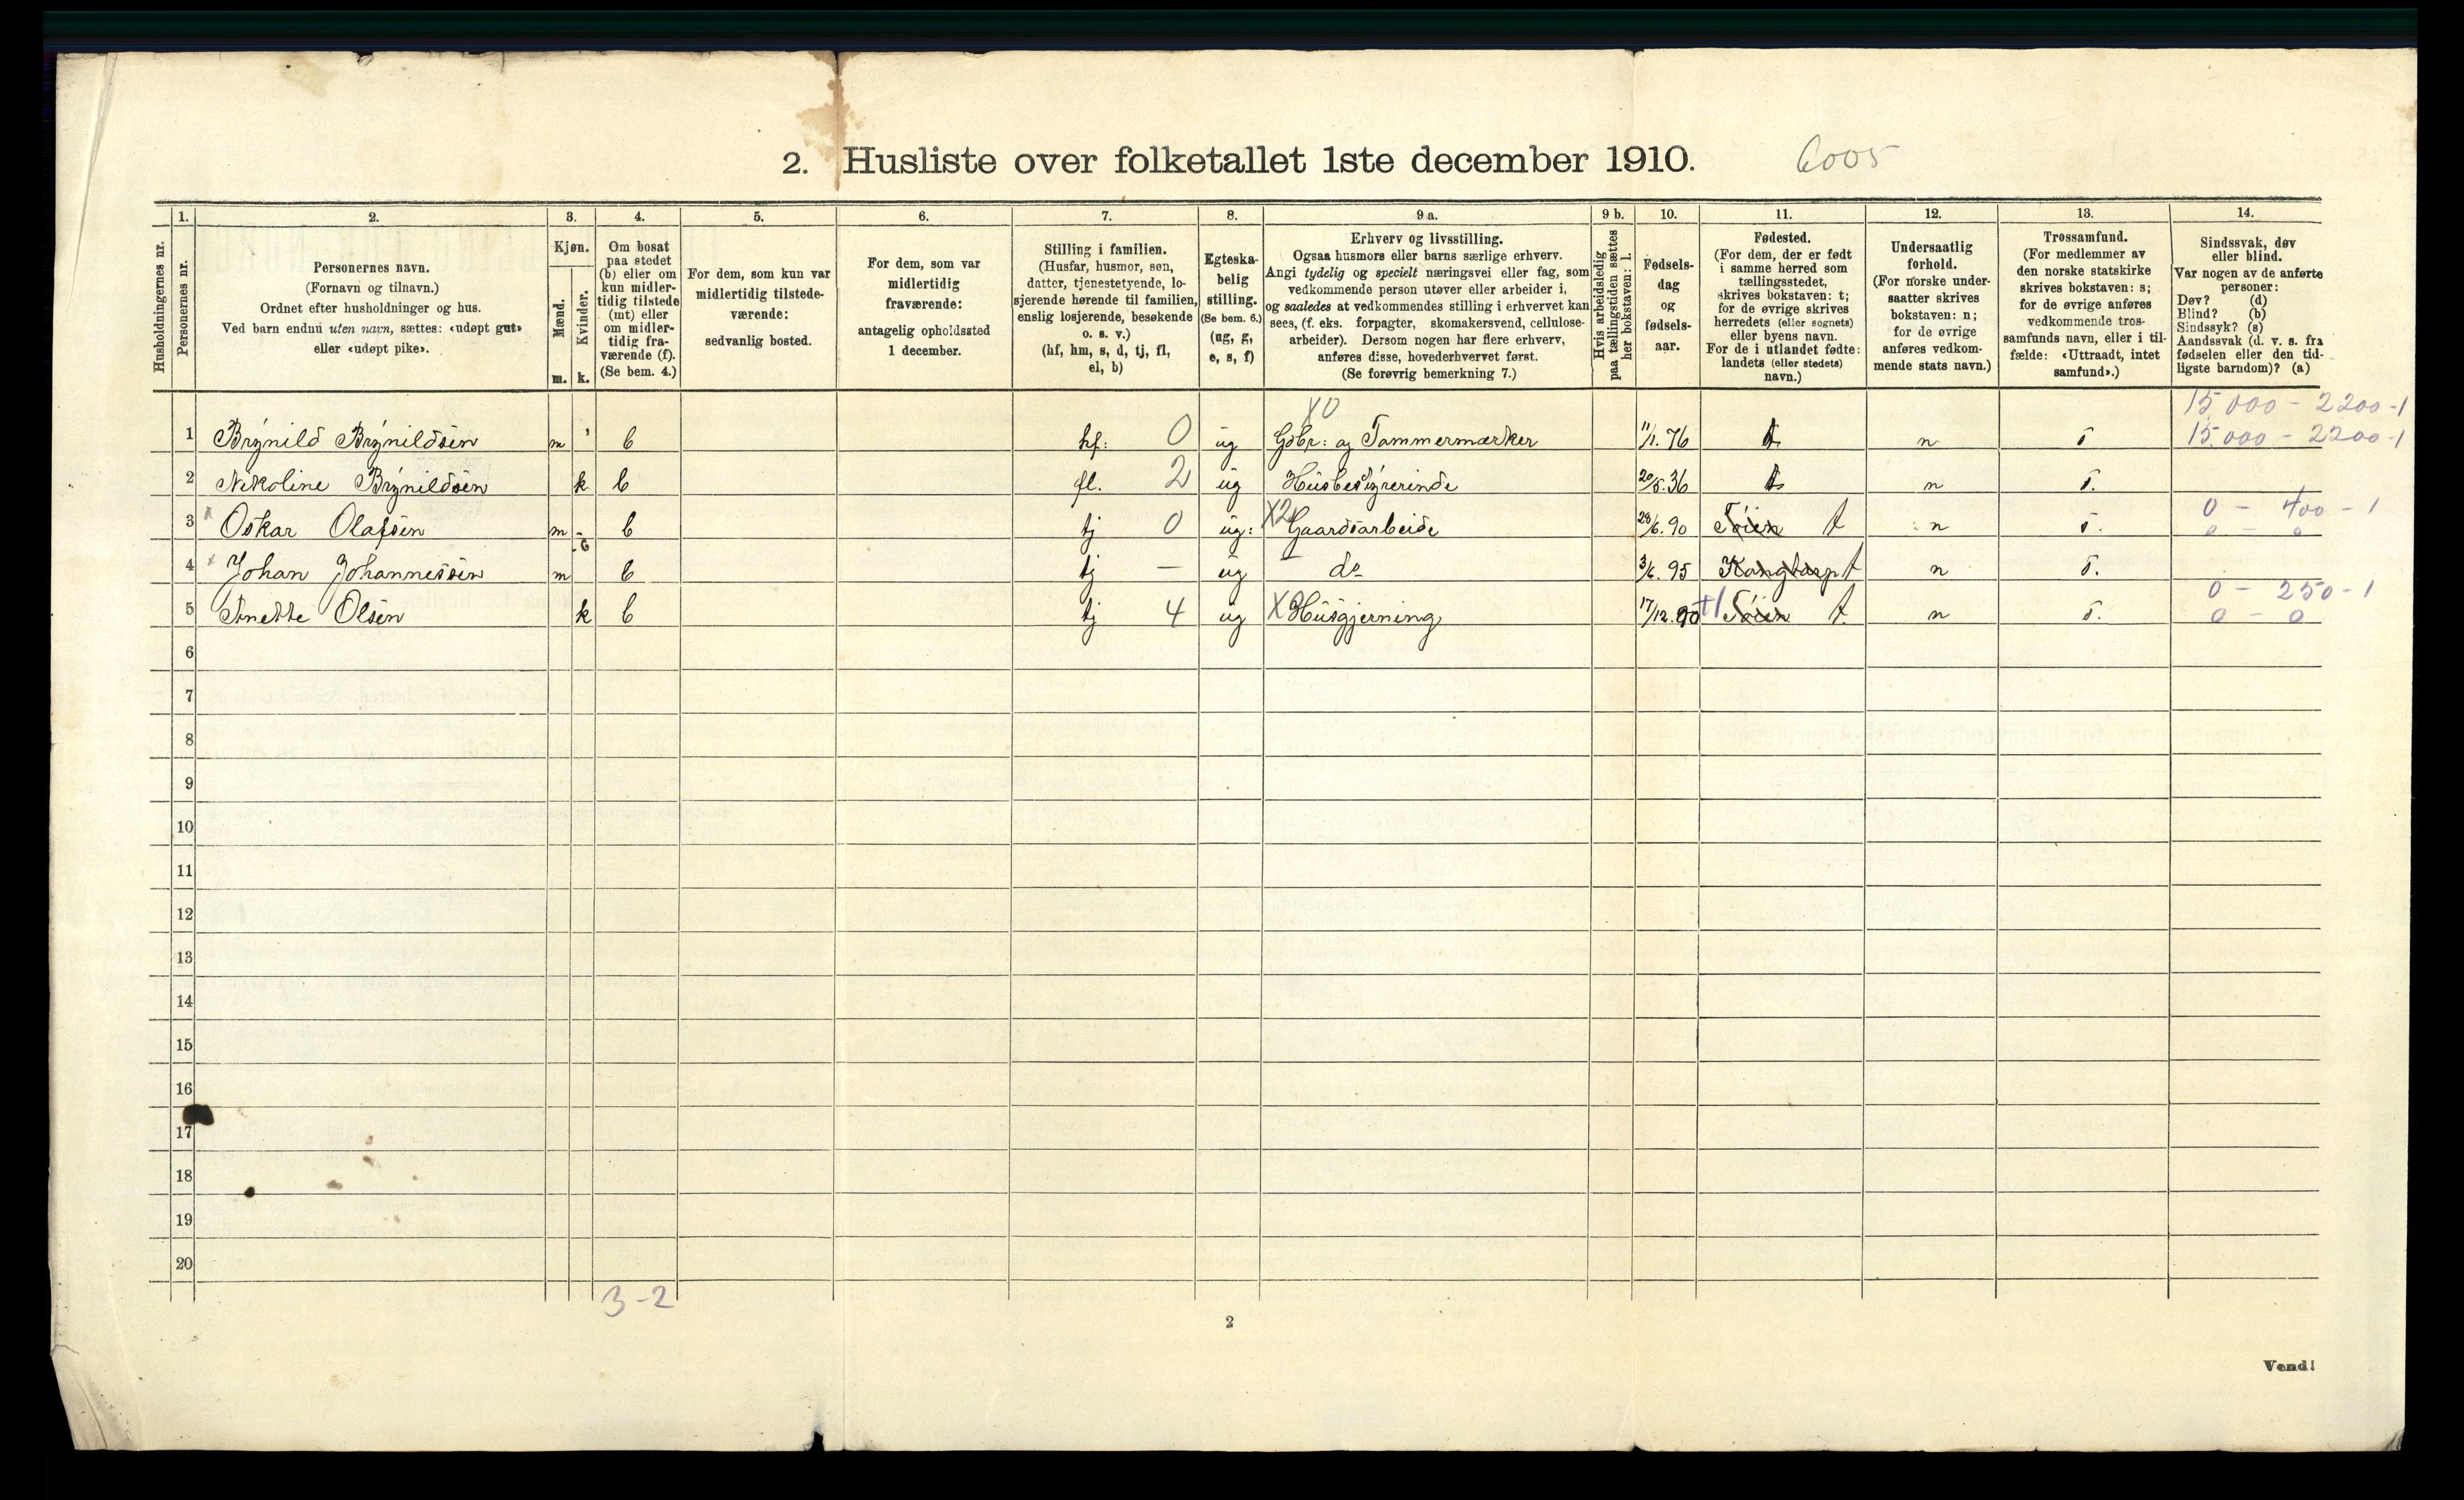 2. Husliste over folketallet 1ste december 1910. 6005
Husholdningernes nr.
1.
Personernes nr.
2.
Personernes navn.
(Fornavn og tilnavn.)
Ordnet efter husholdninger og hus.
Ved barn endnu uten navn, sættes: «udøpt gut»
eller «udøpt pike».
3.
Kjøn.
Mænd.
Kvinder.
m. k.
4.
Om bosat
paa stedet
(b) eller om
kun midler-
tidig tilstede
(mt) eller
om midler-
tidig fra-
værende (f).
(Se bem. 4.)
5.
For dem, som kun var
midlertidig tilstede-
værende:
sedvanlig bosted.
6.
For dem, som var
midlertidig
fraværende:
antagelig opholdssted
1 december.
7.
Stilling i familien.
(Husfar, husmor, søn,
datter, tjenestetyende, lo-
sjerende hørende til familien,
enslig losjerende, besøkende
o. s. v.)
(hf, hm, s, d, tj, fl,
el, b)
8.
Egteska-
belig
stilling.
(Se bem. 6.)
(ug, g,
e, s, f)
9 a.
Erhverv og livsstilling.
Ogsaa husmors eller barns særlige erhverv.
Angi tydelig og specielt næringsvei eller fag, som
vedkommende person utøver eller arbeider i,
og saaledes at vedkommendes stilling i erhvervet kan
sees, (f. eks. forpagter, skomakersvend, cellulose-
arbeider). Dersom nogen har flere erhverv,
anføres disse, hovederhvervet først.
(Se forøvrig bemerkning 7.)
9 b.
Hvis arbeidsledig
paa tællingstiden sættes
her bokstaven: l.
10.
Fødsels-
dag
og
fødsels-
aar.
11.
Fødested.
(For dem, der er født
i samme herred som
tællingsstedet,
skrives bokstaven: t;
for de øvrige skrives
herredets (eller sognets)
eller byens navn.
For de i utlandet fødte:
landets (eller stedets)
navn.)
12.
Undersaatlig
forhold.
(For norske under-
saatter skrives
bokstaven: n;
for de øvrige
anføres vedkom-
mende stats navn.)
13.
Trossamfund.
(For medlemmer av
den norske statskirke
skrives bokstaven: s;
for de øvrige anføres
vedkommende tros-
samfunds navn, eller i til-
fælde: «Uttraadt, intet
samfund».)
14.
Sindssvak, døv
eller blind.
Var nogen av de anførte
personer:
Døv? (d)
Blind? (b)
Sindssyk? (s)
Aandssvak (d. v. s. fra
fødselen eller den tid-
ligste barndom)? (a)
X0 15.000 - 2200 - 1
1 Brynild Brynildsen m b hf: 0 ug Gbr: og Tømmermærker 11/1. 76 t n s 15.000 - 2200 - 1
2 Nikoline Brynildsen k b fl. 2 ug Husbestyrerinde 20/5. 36 t n s.
0 - 400 - 1
3 x Oskar Olafsen m b tj 0 ug: X2 Gaardsarbeide 28/6. 90 Töien t n s. 0 - 0
4 x Johan Johannessen m b tj — ug do 3/6. 95 t n s.
0 - 250 - 1
5 Anette Olsen k b tj 4 ug X Husgjerning 17/12. 90 Töien t. n s. 0 - 0
6
7
8
9
10
11
12
13
14
15
16
17
18
19
20
3 - 2
2
Vend!